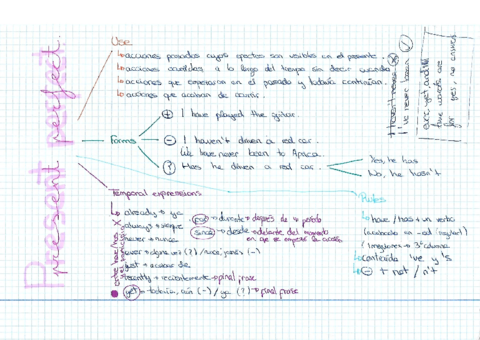 present perfect
Use
acciones pasadas cuyos efectos son visibles en el presente.
acciones ocurridas a lo largo del tiempo sin decir cuando
acciones que empezaron en el pasado y todavía continúan.
acciones que acaban de ocurrir.
Haven't never
I've never been
ever, yet,
these words are
for yes, no
Forms
+ I have played the guitar.
- I haven't driven a red car.
We have never been to Africa.
? Has he driven a red car.
Yes, he has
No, he hasn't
Temporal expressions
already → ya
always → siempre
never → nunca
ever → alguna vez (?) / nunca, jamás (-)
just → acabar de
recently → recientemente → final frase
yet → todavía, aún (-) / ya (?) → final frase
entre have/has y el participio
for → durante → después de
since → desde → delante del momento
en que se empezó la acción
Rules
have / has + un verbo
(acabado en -ed (regular)
(irregulares → 3ª columna
contraída 've y 's
- + not / n't